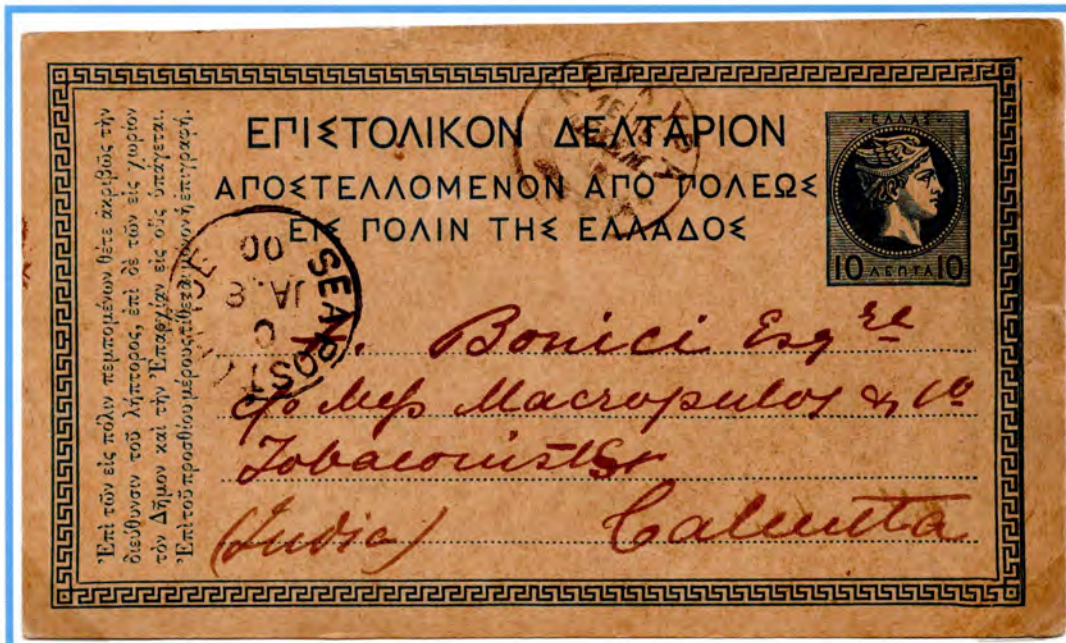 ΕΠΙΣΤΟΛΙΚΟΝ ΔΕΛΤΑΡΙΟΝ
ΑΠΟΣΤΕΛΛΟΜΕΝΟΝ ΑΠΟ ΠΟΛΕΩΣ
ΕΙΣ ΠΟΛΙΝ ΤΗΣ ΕΛΛΑΔΟΣ
ΕΛΛΑΣ
10 ΛΕΠΤΑ 10
Ἐπὶ τῶν εἰς πόλιν πεμπομένων θέτε ἀκριβῶς τὴν
διεύθυνσιν τοῦ λήπτορος, ἐπὶ δὲ τῶν εἰς χωρίον
τὸν Δῆμον καὶ τὴν Ἐπαρχίαν εἰς οὓς ὑπάγεται.
Ἐπὶ τοῦ προσθίου μέρους τίθεται μόνον ἡ ἐπιγραφή.
SEA POST
JA. 8
00
Bonici Esqre
c/o Mess Macropulos & Co
Tobaconists
(India) Calcutta